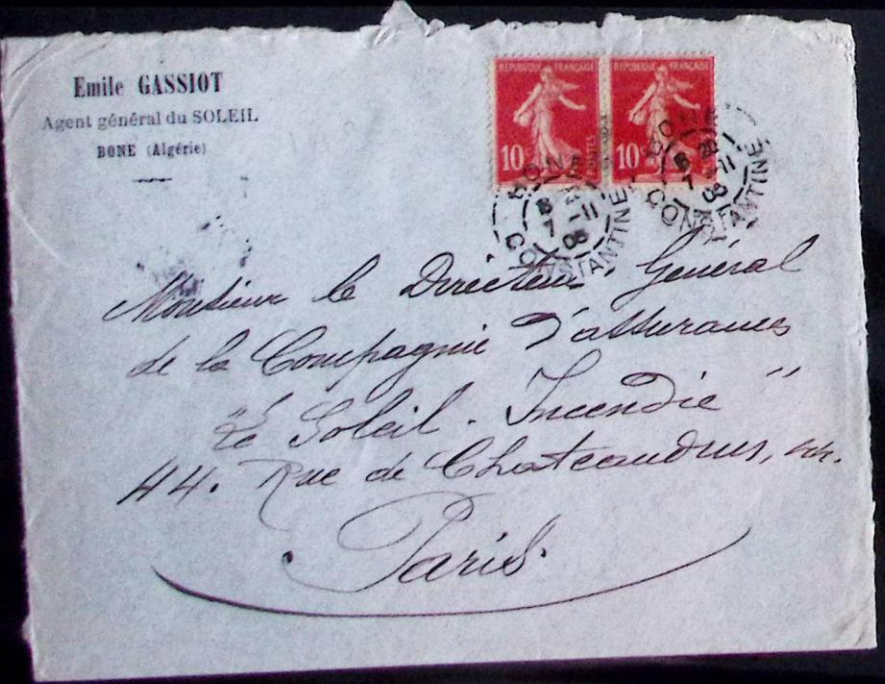 Emile GASSIOT
Agent général du SOLEIL
BONE (Algérie)
REPUBLIQUE FRANÇAISE
10c
POSTES
REPUBLIQUE FRANÇAISE
10c
BONE
7 -11
08
CONSTANTINE
BONE
7 -11
08
CONSTANTINE
Monsieur le Directeur Général
de la Compagnie d'assurances
"Le Soleil - Incendie"
44. Rue de Chateaudun, 44.
Paris.